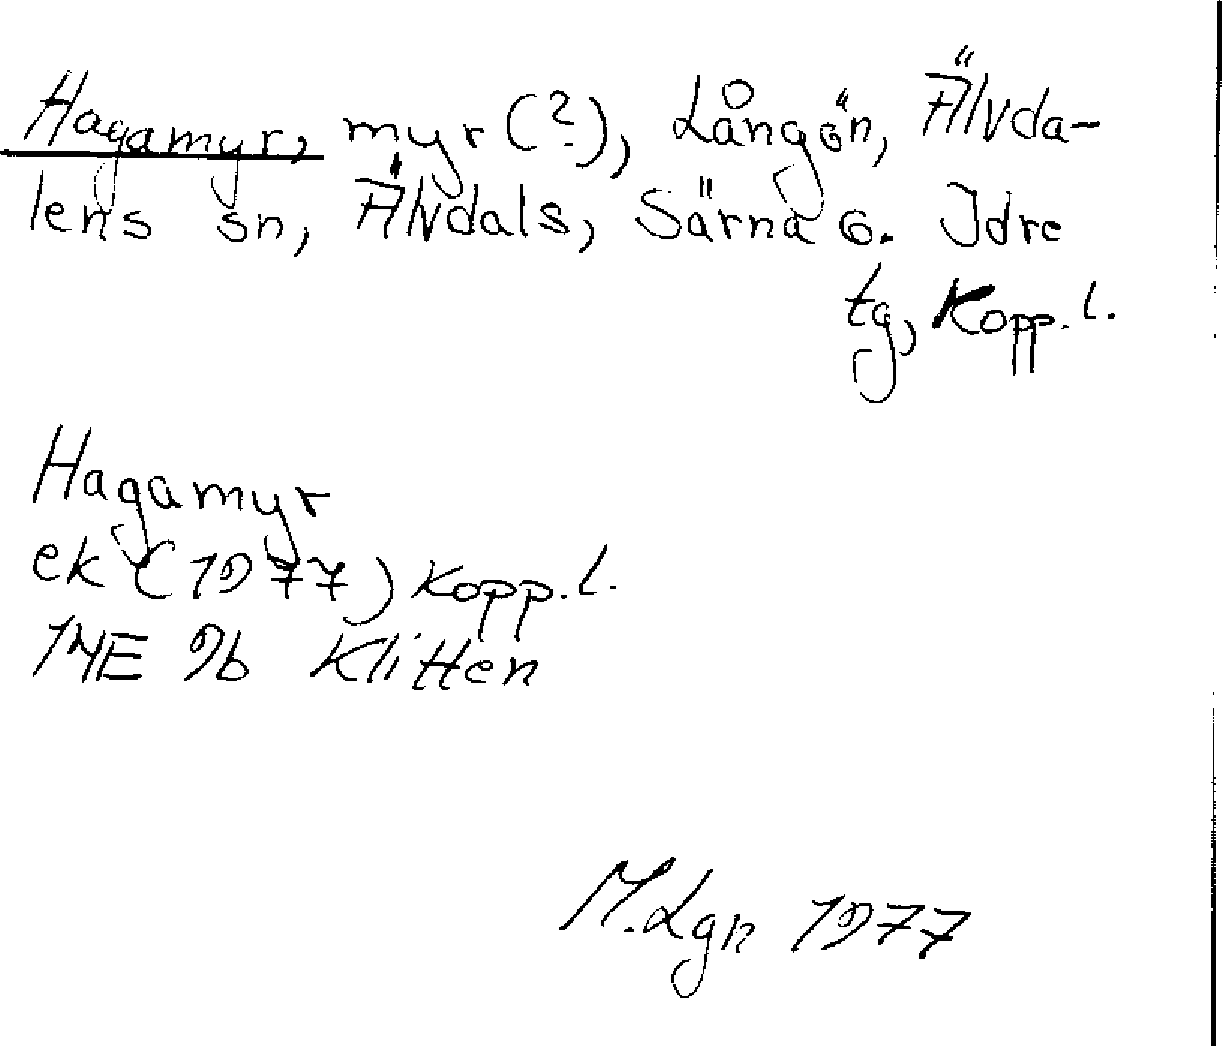 Hagamyr, myr (?), Långön, Älvda-
lens sn, Älvdals, Särna o. Idre
tg, Kopp. l.
Hagamyr
ek (1977) Kopp. l.
14E 9b Klitten
M. Lgn 1977